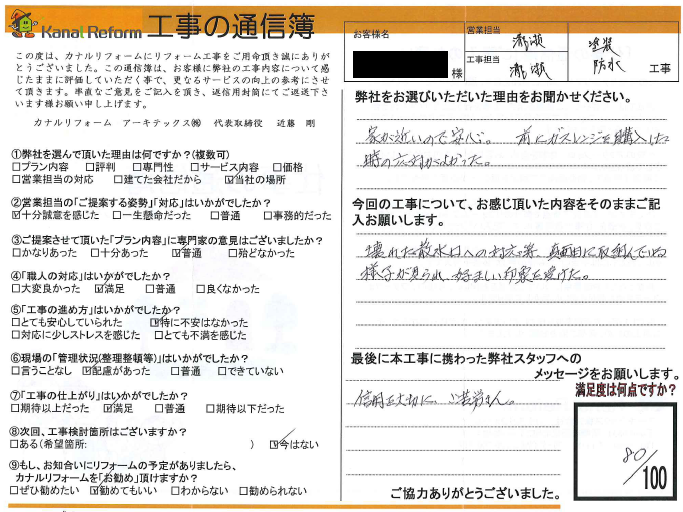 Kanal Reform 工事の通信簿
この度は、カナルリフォームにリフォーム工事をご用命頂き誠にありが
とうございました。この通信簿は、お客様に弊社の工事内容について感
じたままに評価していただく事で、更なるサービスの向上の参考にさせ
て頂きます。率直なご意見をご記入を頂き、返信用封筒にてご返送下さ
います様お願い申し上げます。
カナルリフォーム アーキテックス㈱ 代表取締役 近藤 剛
①弊社を選んで頂いた理由は何ですか?(複数可)
□プラン内容 □評判 □専門性 □サービス内容 □価格
□営業担当の対応 □建てた会社だから ☑当社の場所
②営業担当の「ご提案する姿勢」「対応」はいかがでしたか?
☑十分誠意を感じた □一生懸命だった □普通 □事務的だった
③ご提案させて頂いた「プラン内容」に専門家の意見はございましたか?
□かなりあった □十分あった ☑普通 □殆どなかった
④「職人の対応」はいかがでしたか?
□大変良かった ☑満足 □普通 □良くなかった
⑤「工事の進め方」はいかがでしたか?
□とても安心していられた ☑特に不安はなかった
□対応に少しストレスを感じた □とても不満を感じた
⑥現場の「管理状況(整理整頓等)」はいかがでしたか?
□言うことなし ☑配慮があった □普通 □できていない
⑦「工事の仕上がり」はいかがでしたか?
□期待以上だった ☑満足 □普通 □期待以下だった
⑧次回、工事検討箇所はございますか?
□ある(希望箇所: ) ☑今はない
⑨もし、お知合いにリフォームの予定がありましたら、
カナルリフォームを「お勧め」頂けますか?
□ぜひ勧めたい ☑勧めてもいい □わからない □勧められない
お客様名
様
営業担当 瀧瀬
工事担当 瀧瀬
塗装
防水 工事
弊社をお選びいただいた理由をお聞かせください。
家が近いので安心。前にガスレンジを購入した
時の応対がよかった。
今回の工事について、お感じ頂いた内容をそのままご記
入お願いします。
壊れた散水口への対応等 真面目に取り組んでいる
様子が見られ、好ましい印象を受けた。
最後に本工事に携わった弊社スタッフへの
メッセージをお願いします。
信用を大切に。ご苦労さん。
満足度は何点ですか?
80/100
ご協力ありがとうございました。